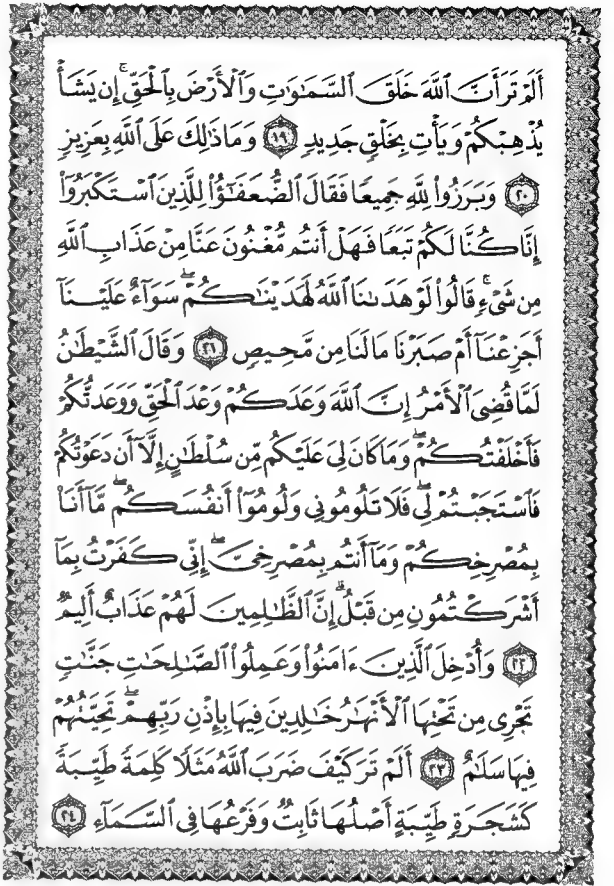 أَلَمْ تَرَ أَنَّ ٱللَّهَ خَلَقَ ٱلسَّمَٰوَٰتِ وَٱلْأَرْضَ بِٱلْحَقِّ ۚ إِن يَشَأْ
يُذْهِبْكُمْ وَيَأْتِ بِخَلْقٍ جَدِيدٍ ١٩ وَمَا ذَٰلِكَ عَلَى ٱللَّهِ بِعَزِيزٍ
٢٠ وَبَرَزُوا۟ لِلَّهِ جَمِيعًا فَقَالَ ٱلضُّعَفَٰٓؤُا۟ لِلَّذِينَ ٱسْتَكْبَرُوٓا۟
إِنَّا كُنَّا لَكُمْ تَبَعًا فَهَلْ أَنتُم مُّغْنُونَ عَنَّا مِنْ عَذَابِ ٱللَّهِ
مِن شَىْءٍ ۚ قَالُوا۟ لَوْ هَدَىٰنَا ٱللَّهُ لَهَدَيْنَٰكُمْ ۖ سَوَآءٌ عَلَيْنَآ
أَجَزِعْنَآ أَمْ صَبَرْنَا مَا لَنَا مِن مَّحِيصٍ ٢١ وَقَالَ ٱلشَّيْطَٰنُ
لَمَّا قُضِىَ ٱلْأَمْرُ إِنَّ ٱللَّهَ وَعَدَكُمْ وَعْدَ ٱلْحَقِّ وَوَعَدتُّكُمْ
فَأَخْلَفْتُكُمْ ۖ وَمَا كَانَ لِىَ عَلَيْكُم مِّن سُلْطَٰنٍ إِلَّآ أَن دَعَوْتُكُمْ
فَٱسْتَجَبْتُمْ لِى ۖ فَلَا تَلُومُونِى وَلُومُوٓا۟ أَنفُسَكُم ۖ مَّآ أَنَا۠
بِمُصْرِخِكُمْ وَمَآ أَنتُم بِمُصْرِخِىَّ ۖ إِنِّى كَفَرْتُ بِمَآ
أَشْرَكْتُمُونِ مِن قَبْلُ ۗ إِنَّ ٱلظَّٰلِمِينَ لَهُمْ عَذَابٌ أَلِيمٌ
٢٢ وَأُدْخِلَ ٱلَّذِينَ ءَامَنُوا۟ وَعَمِلُوا۟ ٱلصَّٰلِحَٰتِ جَنَّٰتٍ
تَجْرِى مِن تَحْتِهَا ٱلْأَنْهَٰرُ خَٰلِدِينَ فِيهَا بِإِذْنِ رَبِّهِمْ ۖ تَحِيَّتُهُمْ
فِيهَا سَلَٰمٌ ٢٣ أَلَمْ تَرَ كَيْفَ ضَرَبَ ٱللَّهُ مَثَلًا كَلِمَةً طَيِّبَةً
كَشَجَرَةٍ طَيِّبَةٍ أَصْلُهَا ثَابِتٌ وَفَرْعُهَا فِى ٱلسَّمَآءِ ٢٤